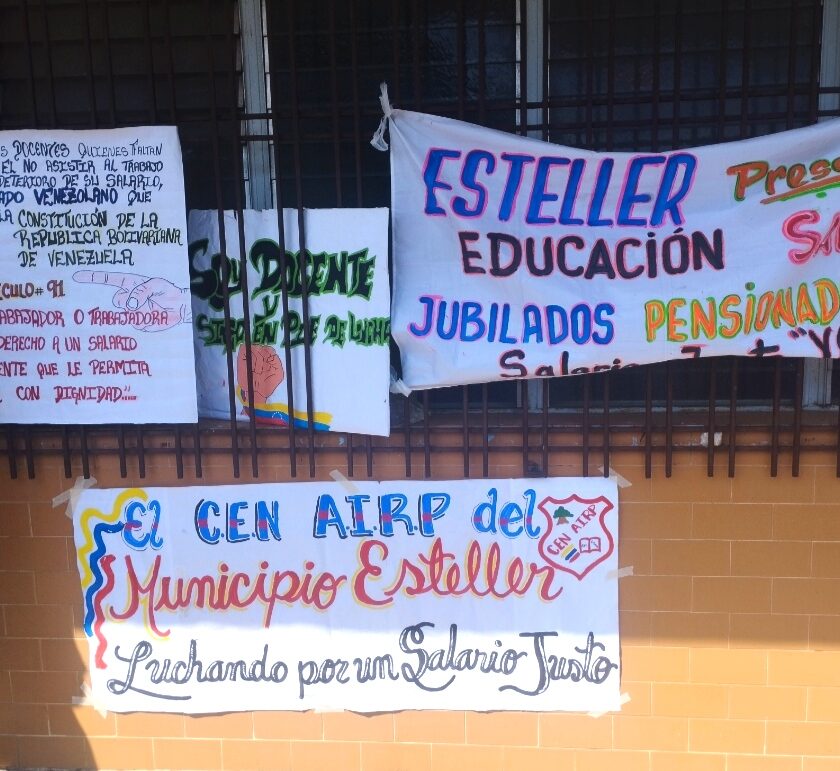 S DOCENTES QUIENES FALTAN
EL NO ASISTIR AL TRABAJO
DETERIORO DE SU SALARIO,
ADO VENEZOLANO QUE
LA CONSTITUCIÓN DE LA
REPUBLICA BOLIVARIANA
DE VENEZUELA
CULO # 91
ABAJADOR O TRABAJADORA
DERECHO A UN SALARIO
ENTE QUE LE PERMITA
CON DIGNIDAD...
SOY DOCENTE
Y
SIGO EN PIE DE LUCHA
ESTELLER Prese
EDUCACIÓN SA
JUBILADOS PENSIONAD
Salario
El C.E.N A.I.R.P del
Municipio Esteller
Luchando por un Salario Justo
CEN AIRP